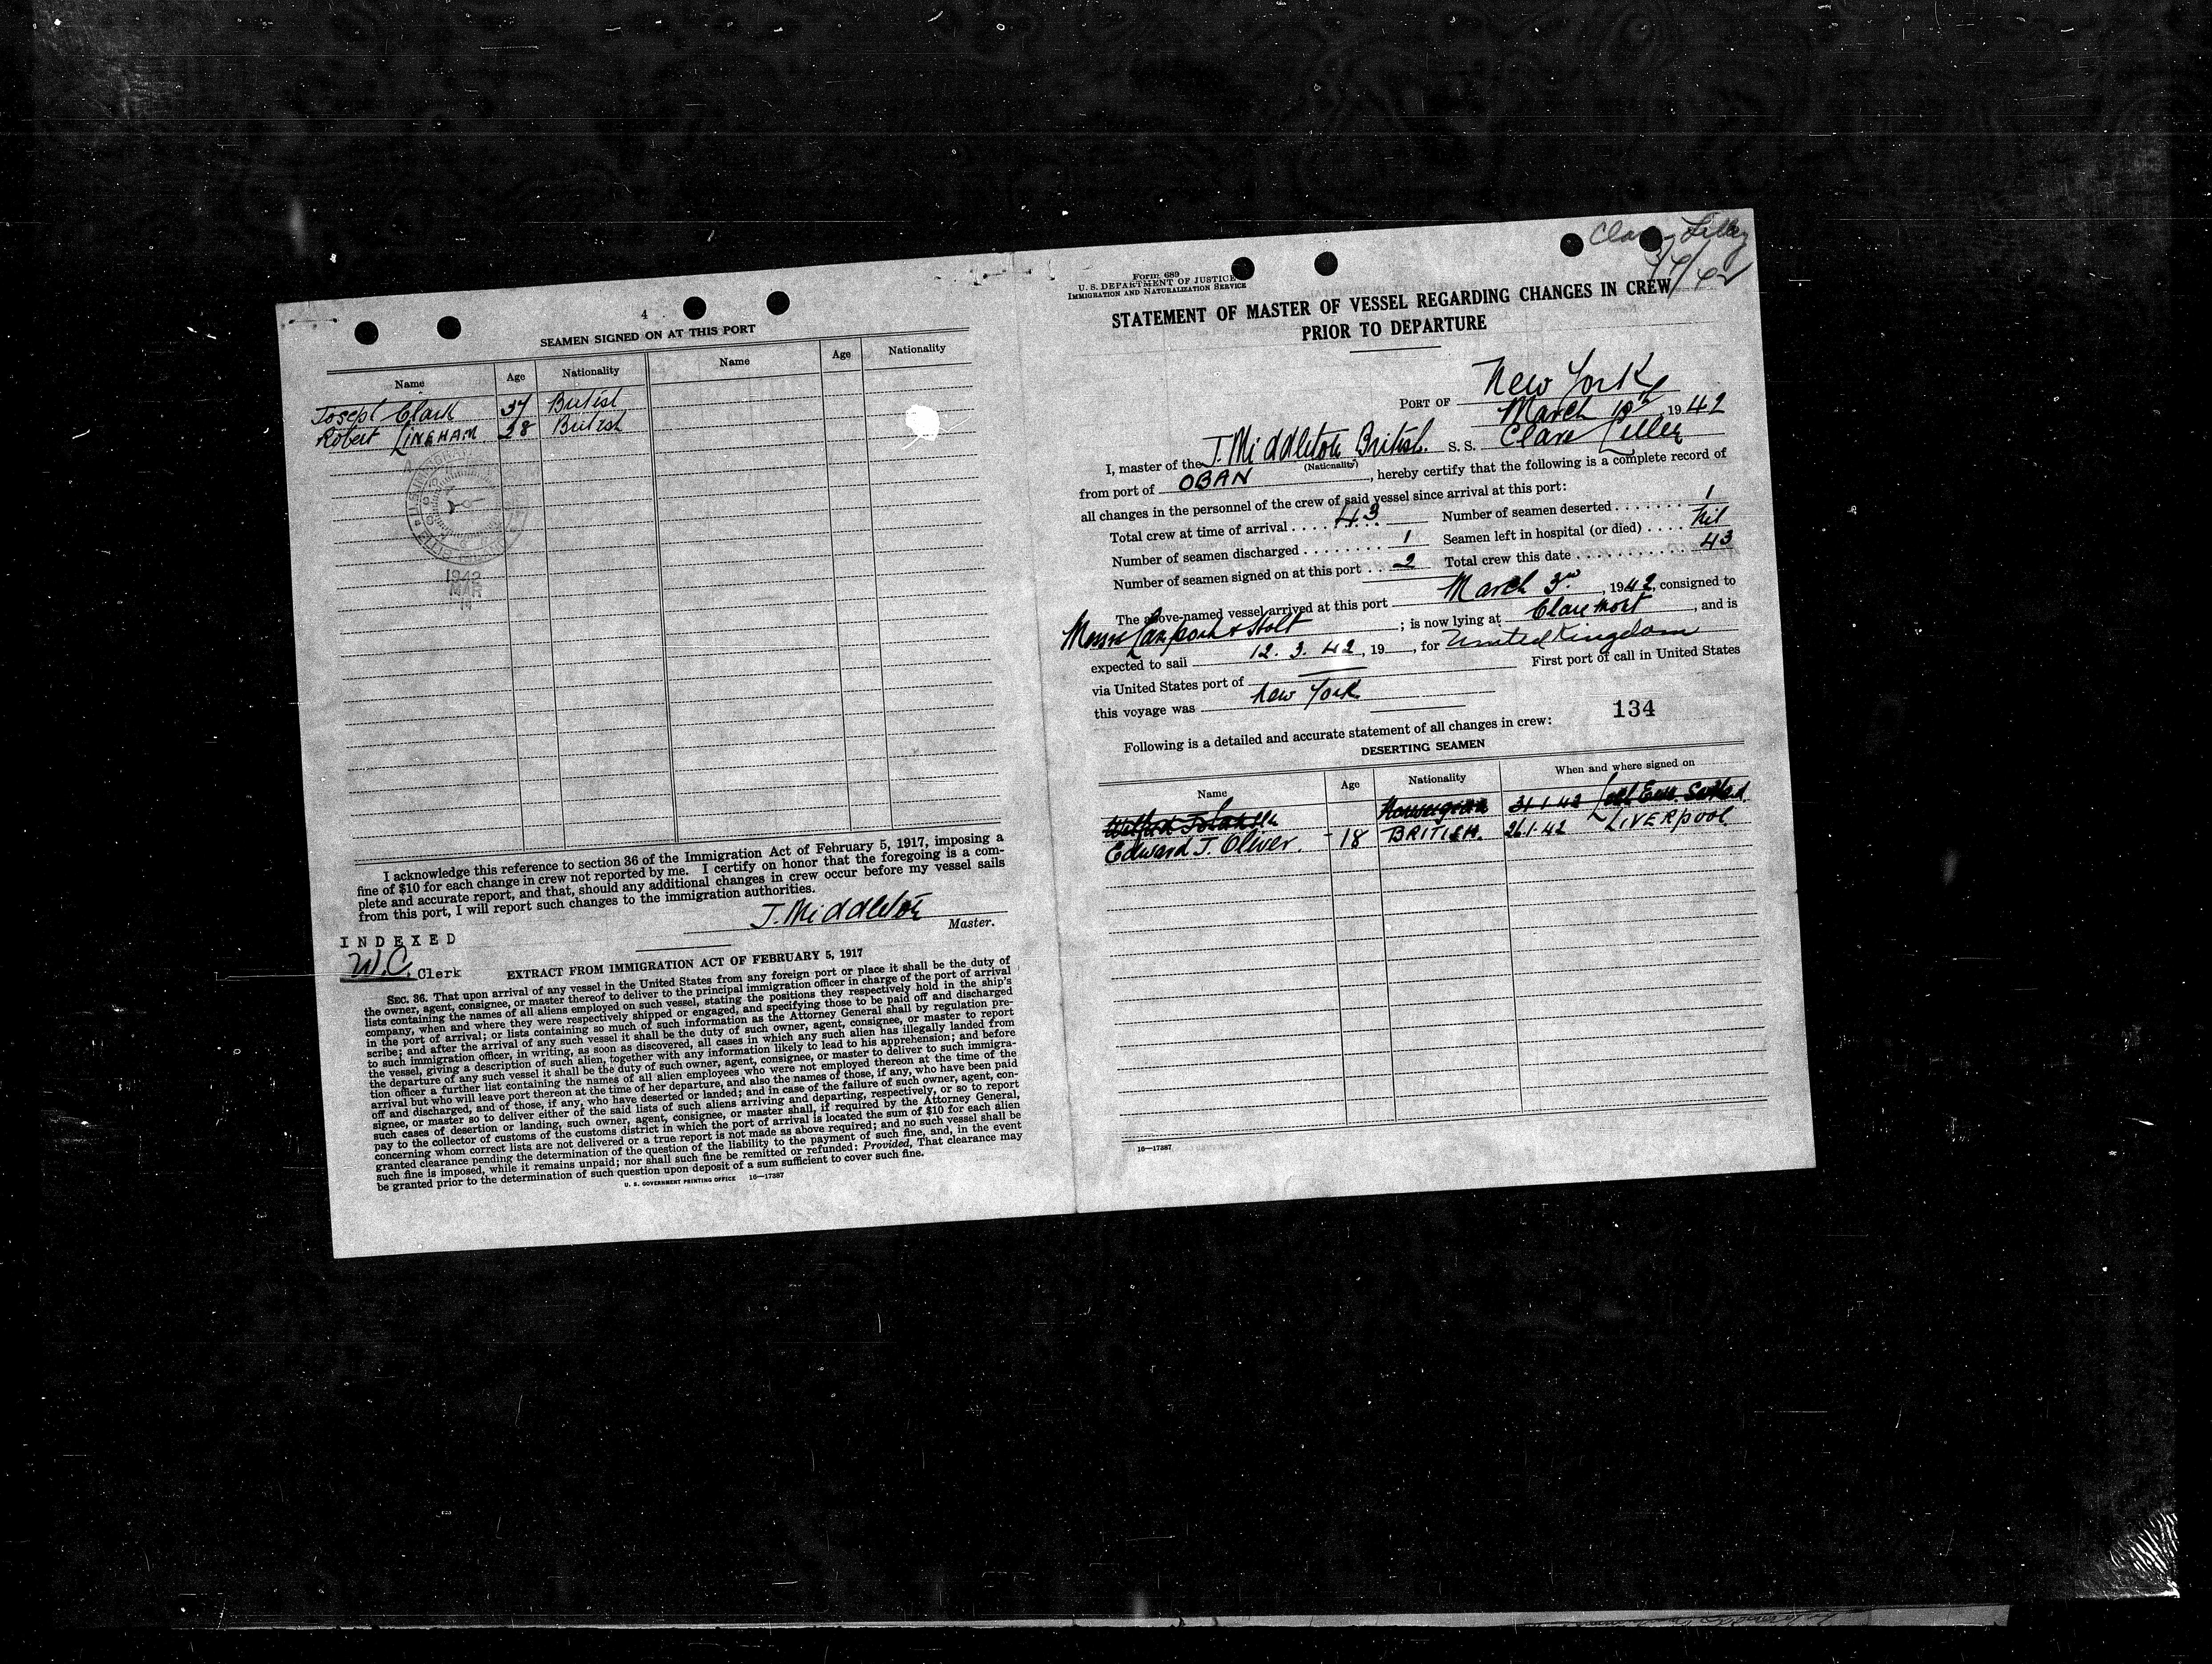 4
SEAMEN SIGNED ON AT THIS PORT
Name Age Nationality Name Age Nationality
Joseph Clark 37 British
Robert LINGHAM 28 British
1942
MAR
11
I acknowledge this reference to section 36 of the Immigration Act of February 5, 1917, imposing a
fine of $10 for each change in crew not reported by me. I certify on honor that the foregoing is a com-
plete and accurate report, and that, should any additional changes in crew occur before my vessel sails
from this port, I will report such changes to the immigration authorities.
J. Middleton
Master.
INDEXED
W.C. Clerk
EXTRACT FROM IMMIGRATION ACT OF FEBRUARY 5, 1917
SEC. 36. That upon arrival of any vessel in the United States from any foreign port or place it shall be the duty of
the owner, agent, consignee, or master thereof to deliver to the principal immigration officer in charge of the port of arrival
lists containing the names of all aliens employed on such vessel, stating the positions they respectively hold in the ship's
company, when and where they were respectively shipped or engaged, and specifying those to be paid off and discharged
in the port of arrival; or lists containing so much of such information as the Attorney General shall by regulation pre-
scribe; and after the arrival of any such vessel it shall be the duty of such owner, agent, consignee, or master to report
to such immigration officer, in writing, as soon as discovered, all cases in which any such alien has illegally landed from
the vessel, giving a description of such alien, together with any information likely to lead to his apprehension; and before
the departure of any such vessel it shall be the duty of such owner, agent, consignee, or master to deliver to such immigra-
tion officer a further list containing the names of all alien employees who were not employed thereon at the time of the
arrival but who will leave port thereon at the time of her departure, and also the names of those, if any, who have been paid
off and discharged, and of those, if any, who have deserted or landed; and in case of the failure of such owner, agent, con-
signee, or master so to deliver either of the said lists of such aliens arriving and departing, respectively, or so to report
such cases of desertion or landing, such owner, agent, consignee, or master shall, if required by the Attorney General,
pay to the collector of customs of the customs district in which the port of arrival is located the sum of $10 for each alien
concerning whom correct lists are not delivered or a true report is not made as above required; and no such vessel shall be
granted clearance pending the determination of the question of the liability to the payment of such fine, and, in the event
such fine is imposed, while it remains unpaid; nor shall such fine be remitted or refunded: Provided, That clearance may
be granted prior to the determination of such question upon deposit of a sum sufficient to cover such fine.
U. S. GOVERNMENT PRINTING OFFICE 16—17387
Form 689
U. S. DEPARTMENT OF JUSTICE
IMMIGRATION AND NATURALIZATION SERVICE
STATEMENT OF MASTER OF VESSEL REGARDING CHANGES IN CREW
PRIOR TO DEPARTURE
PORT OF New York
March 10th, 1942
I, master of the J. Middleton British. S. S. Clare Lilley
(Nationality)
from port of OBAN, hereby certify that the following is a complete record of
all changes in the personnel of the crew of said vessel since arrival at this port:
Total crew at time of arrival .... 43 Number of seamen deserted ....... 1
Number of seamen discharged ........ 1 Seamen left in hospital (or died) .... Nil
Number of seamen signed on at this port .. 2 Total crew this date .......... 43
The above-named vessel arrived at this port March 3rd, 1942, consigned to
Messrs Lamport & Holt; is now lying at Claremont, and is
expected to sail 12. 3. 42, 19, for United Kingdom
via United States port of First port of call in United States
this voyage was New York
134
Following is a detailed and accurate statement of all changes in crew:
DESERTING SEAMEN
Name Age Nationality When and where signed on
Norwegian 31-1-42
Edward J. Oliver. 18 BRITISH. 26.1.42 LIVERpool.
16—17387